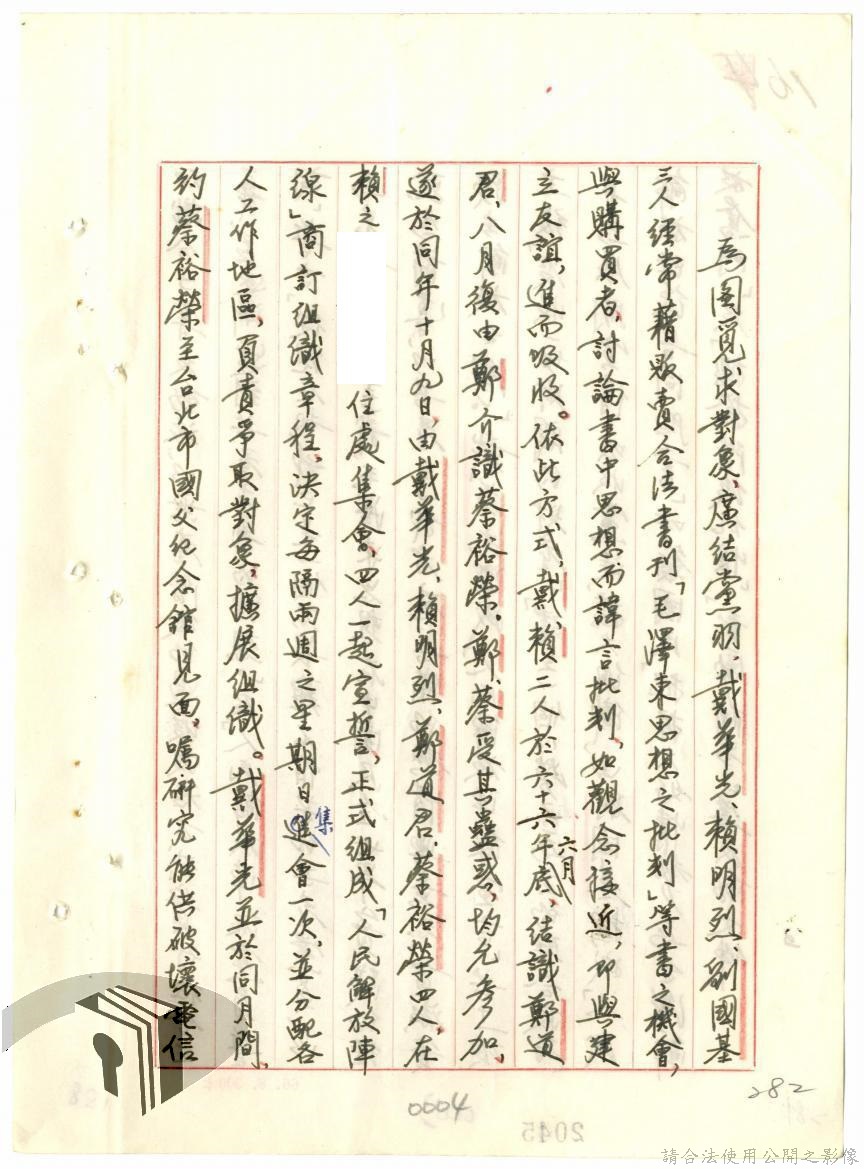 為圖覓求對象、廣結黨羽、戴華光、賴明烈、劉國基
三人經常藉販賣合法書刊「毛澤東思想之批判」等書之機會，
與購買者，討論書中思想而諱言批判，如觀念接近，即與建
立友誼，進而吸收。依此方式，戴、賴二人於六十六年六月底，結識鄭道
君，八月復由鄭介識蔡裕榮，鄭、蔡受其蠱惑，均允參加，
遂於同年十月九日，由戴華光、賴明烈、鄭道君、蔡裕榮四人，在
賴之 住處集會，四人一起宣誓，正式組成「人民解放陣
線」商訂組織章程，決定每隔兩週之星期日集會一次，並分配各
人工作地區，負責爭取對象，擴展組織。戴華光並於同月間，
約蔡裕榮至台北市國父紀念館見面，囑研究能供破壞電信
282
0004
2045
請合法使用公開之影像